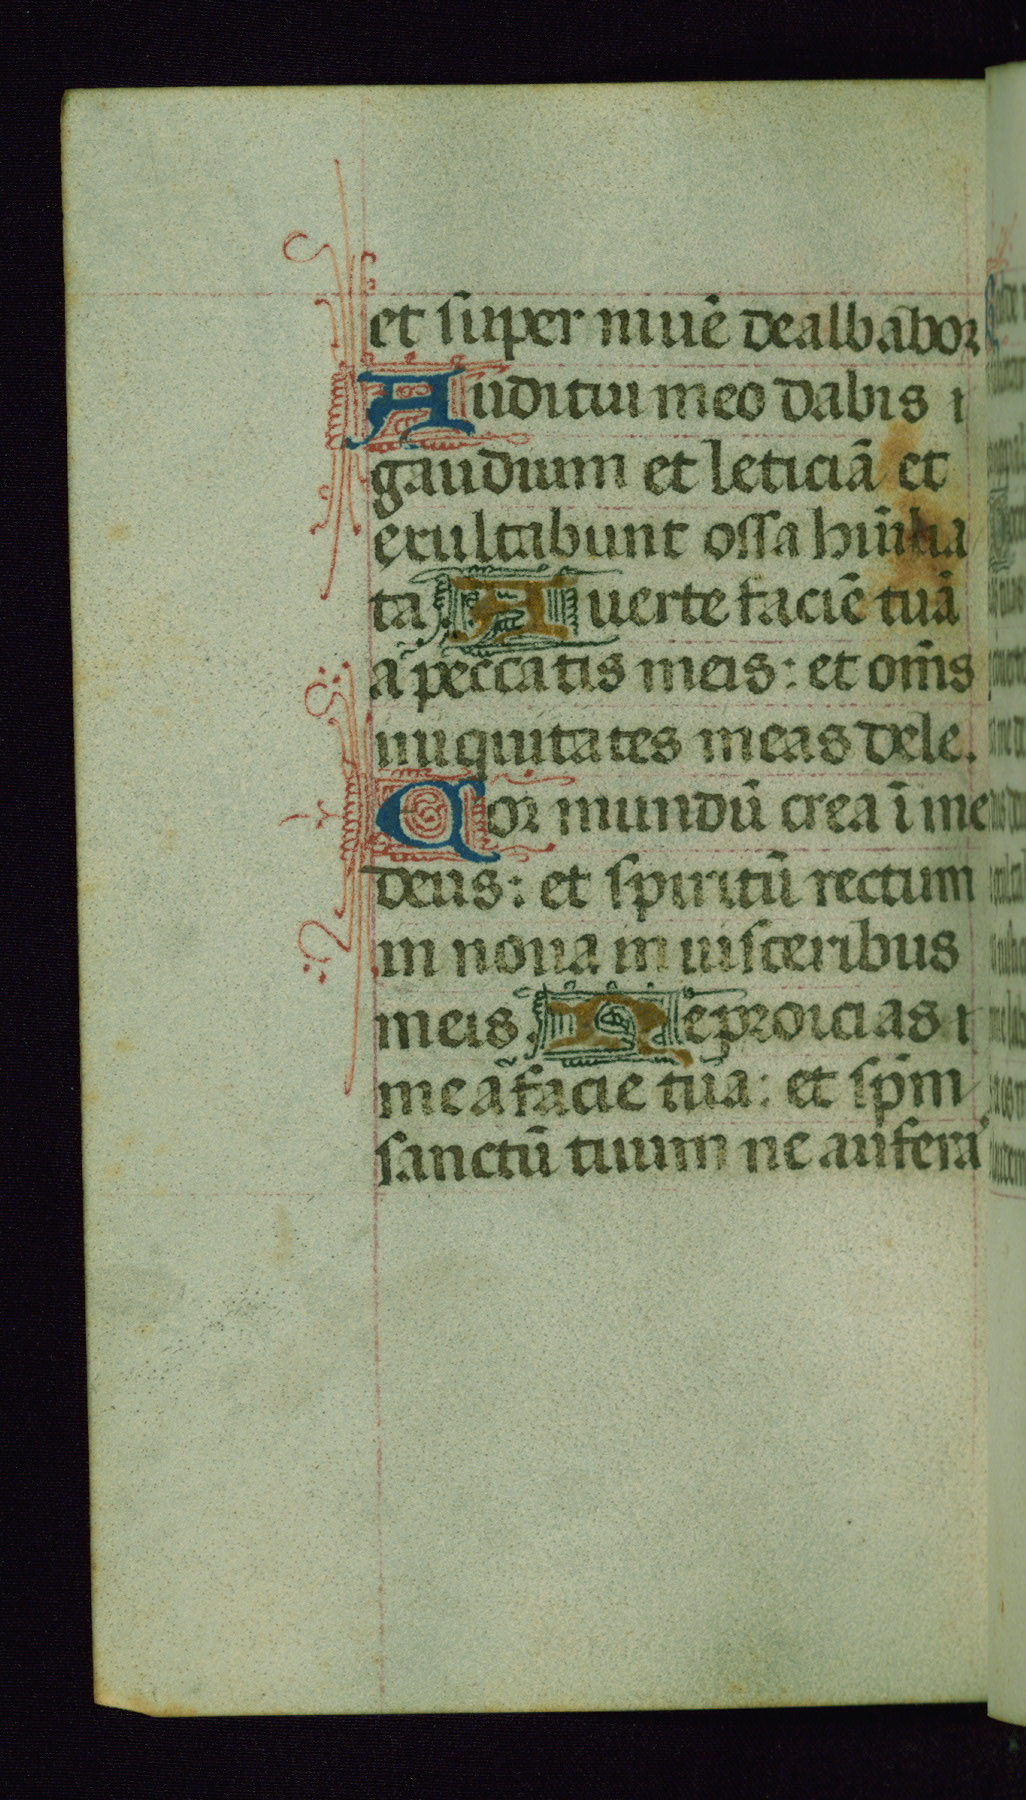 et super niuē dealbabor
Auditui meo dabis ı
gaudium et leticiā et
exultabunt ossa hūilia
ta Auerte faciē tuā
a peccatis meis: et om̄s
iniquitates meas dele.
Cor mundū crea ī me
deus: et spiritū rectum
in noua in uisceribus
meis. Ne proicias ı
me a facie tua: et sp̄m
sanctū tuum ne aufera